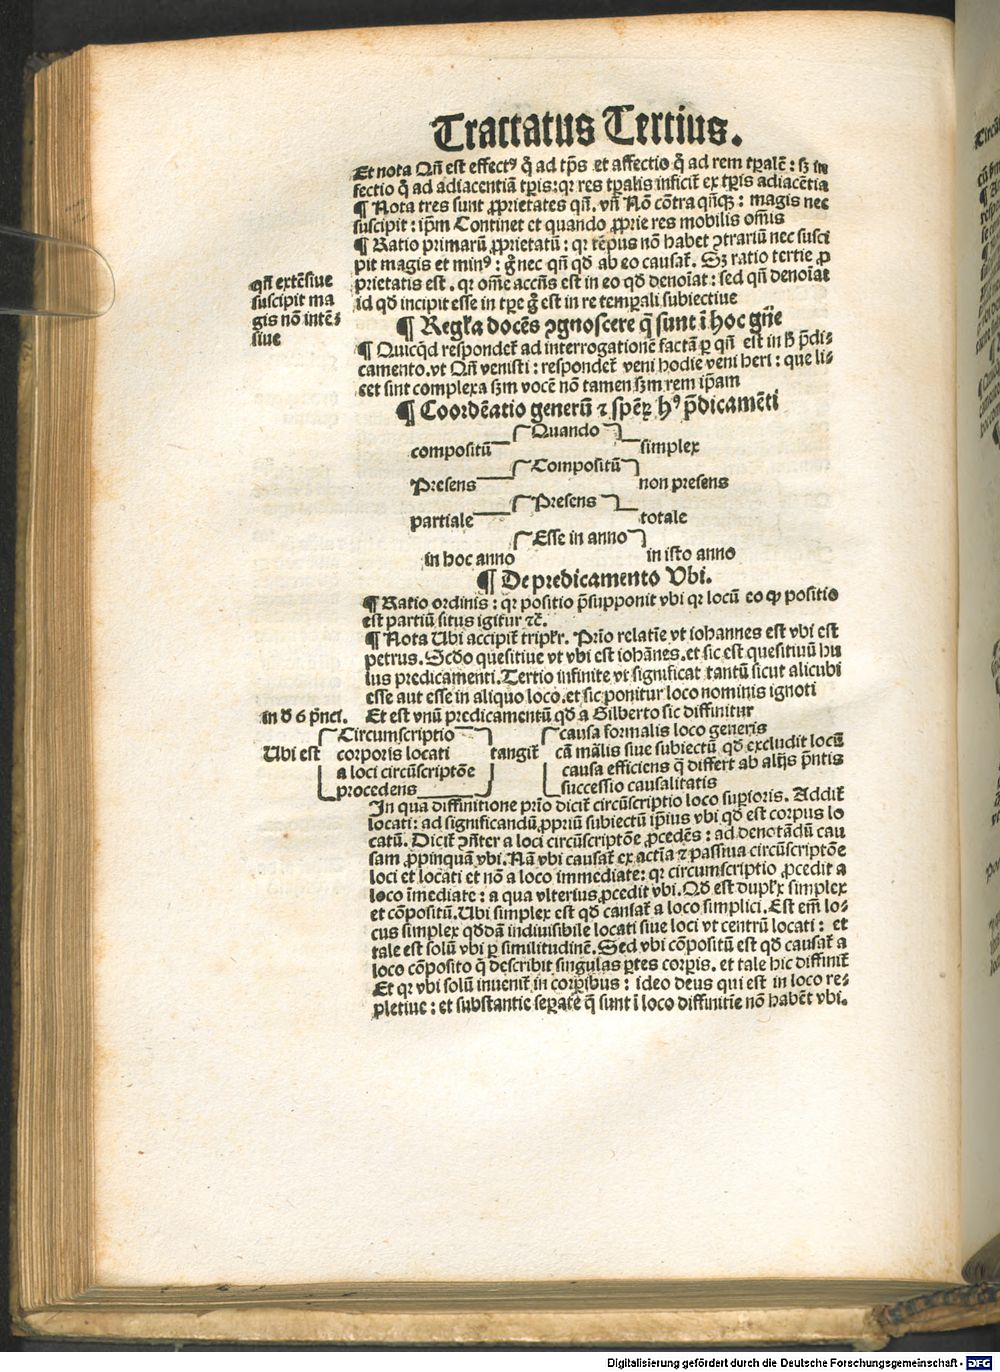 Tractatus Tertius.
Et nota Qñ est effectꝰ q̃ ad tp̃s et affectio q̃ ad rem tꝑalē: sꝫ in
fectio q̃ ad adiacentiā tꝑis: qꝛ res tꝑalis inficit̄ ex tꝑis adiacētia
¶ Nota tres sunt ꝓprietates qñ. vñ Nō cōtra qñqꝫ: magis nec
suscipit: ip̄m Continet et quando ꝓprie res mobilis om̄is
¶ Ratio primarū ꝓprietatū: qꝛ tēpus nō habet ꝯtrariū nec susci
pit magis et minꝰ: g̊ nec qñ qd̄ ab eo causat̄. Sꝫ ratio tertie ꝓ
prietatis est. qꝛ om̄e accn̄s est in eo qd̄ denoīat: sed qñ denoīat
id qd̄ incipit esse in tꝑe g̊ est in re temꝑali subiectiue
qñ extēsiue
suscipit ma
gis nō intē-
siue
¶ Regl̄a docēs ꝯgnoscere q̄ sunt ī hoc gn̄e
¶ Quicq̇d respondet̄ ad interrogationē factā ꝑ qñ est in h̄ p̄di-
camento. vt Qñ venisti: respondet̄ veni hodie veni heri: que li-
cet sint complexa sꝫm vocē nō tamen sꝫm rem ip̄am
¶ Coordēatio generū ⁊ spēꝝ hꝰ p̄dicamēti
Quando
compositū simplex
Compositū
Presens non presens
Presens
partiale totale
Esse in anno
in hoc anno in isto anno
¶ De predicamento Vbi.
¶ Ratio ordinis: qꝛ positio p̄supponit vbi qꝛ locū eo ꝙ positio
est partiū situs igitur ⁊c̄.
¶ Nota Ubi accipit̄ tripl̄r. Prīo relatīe vt iohannes est vbi est
petrus. Scd̄o quesitiue vt vbi est iohānes. et sic est quesitiuū hu
ius predicamenti. Tertio infinite vt significat tantū sicut alicubi
esse aut esse in aliquo loco. et sic ponitur loco nominis ignoti
in d̄ 6 p̄nci. Et est vnū predicamentū qd̄ a Gilberto sic diffinitur
Circumscriptio causa formalis loco generis
Ubi est corporis locati tangit̄ cā māl̄is siue subiectū qd̄ excludit locū
a loci circūscriptōe causa efficiens q̄ differt ab alijs p̄ntis
procedens successio causalitatis
In qua diffinitione prīo dicit̄ circūscriptio loco suꝑioris. Addit̄
locati: ad significandū ꝓpriū subiectū ip̄ius vbi qd̄ est corpus lo
catū. Dicit̄ ꝯn̄ter a loci circūscriptōe ꝓcedēs: ad denotādū cau
sam ꝓpinquam vbi. Nā vbi causat̄ ex actīa ⁊ passiua circūscriptōe
loci et locati et nō a loco immediate: qꝛ circumscriptio ꝓcedit a
loco īmediate: a qua vlterius ꝓcedit vbi. Qd̄ est dupl̄x simplex
et cōpositū. Ubi simplex est qd̄ causat̄ a loco simplici. Est em̄ lo-
cus simplex qd̄dā indiuisibile locati siue loci vt centrū locati: et
tale est solū vbi ꝑ similitudinē. Sed vbi cōpositū est qd̄ causat̄ a
loco cōposito q̄ describit singulas ꝑtes corꝑis. et tale hic diffinit̄
Et qꝛ vbi solū inuenit̄ in corꝑibus: ideo deus qui est in loco re-
pletiue: et substantie seꝑate q̄ sunt ī loco diffinitīe nō habēt vbi.
Digitalisierung gefördert durch die Deutsche Forschungsgemeinschaft - DFG